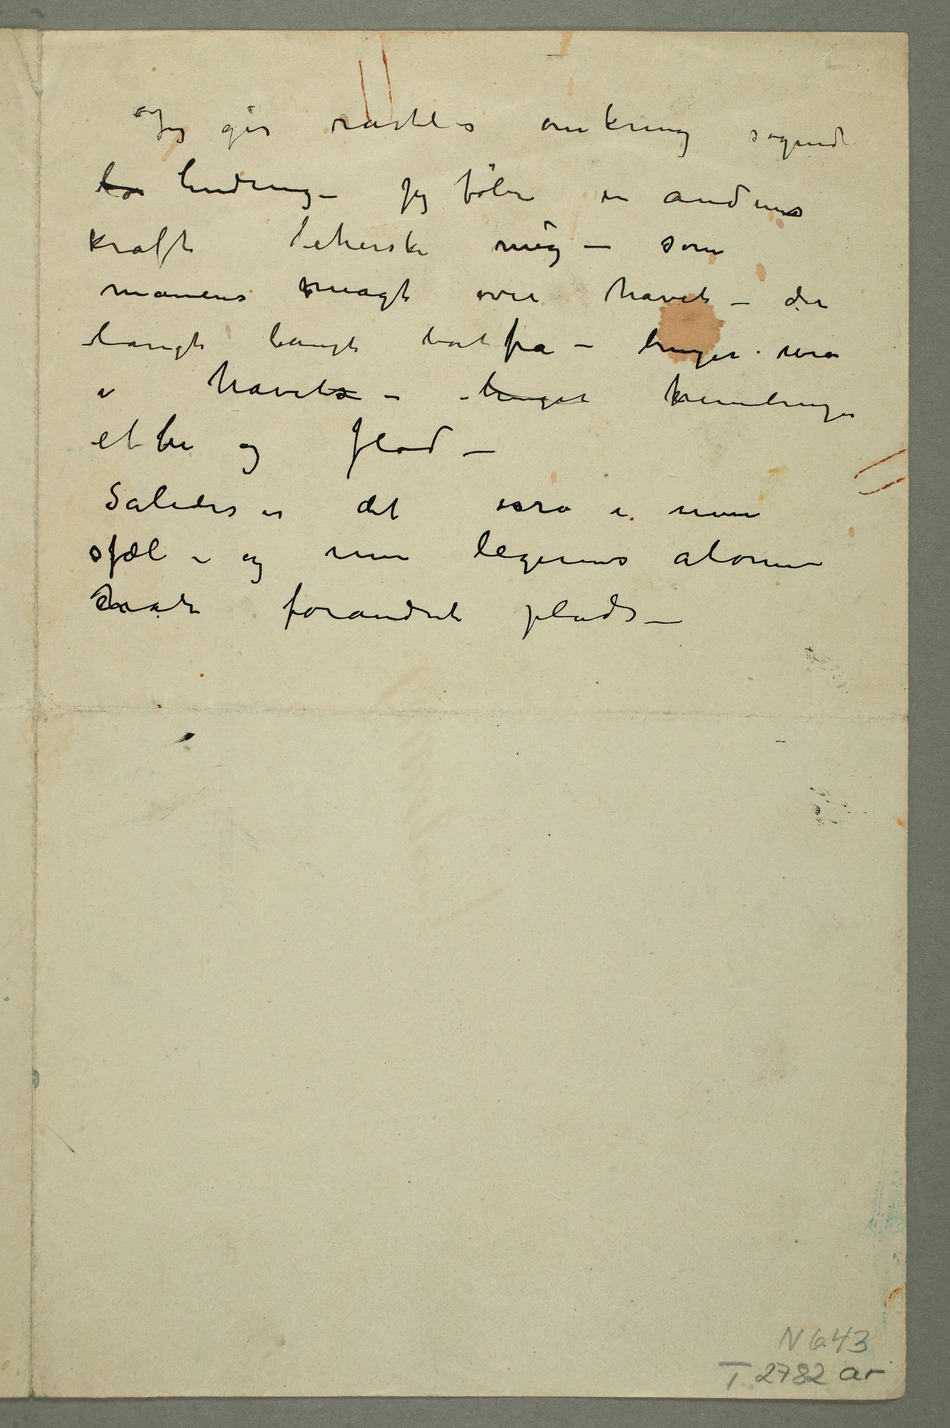 Jeg går rastløs omkring søgende
for lindring – Jeg føler en andens
kraft beherske mig – som
månens magt over havet – der
langt langt bortfra – bringer uro
i havets – bringer frembringer
ebbe og flod –
Således er det uro i min
sjæl – og min legems atomer
har forandret plads –
N 643
T 2782 ar